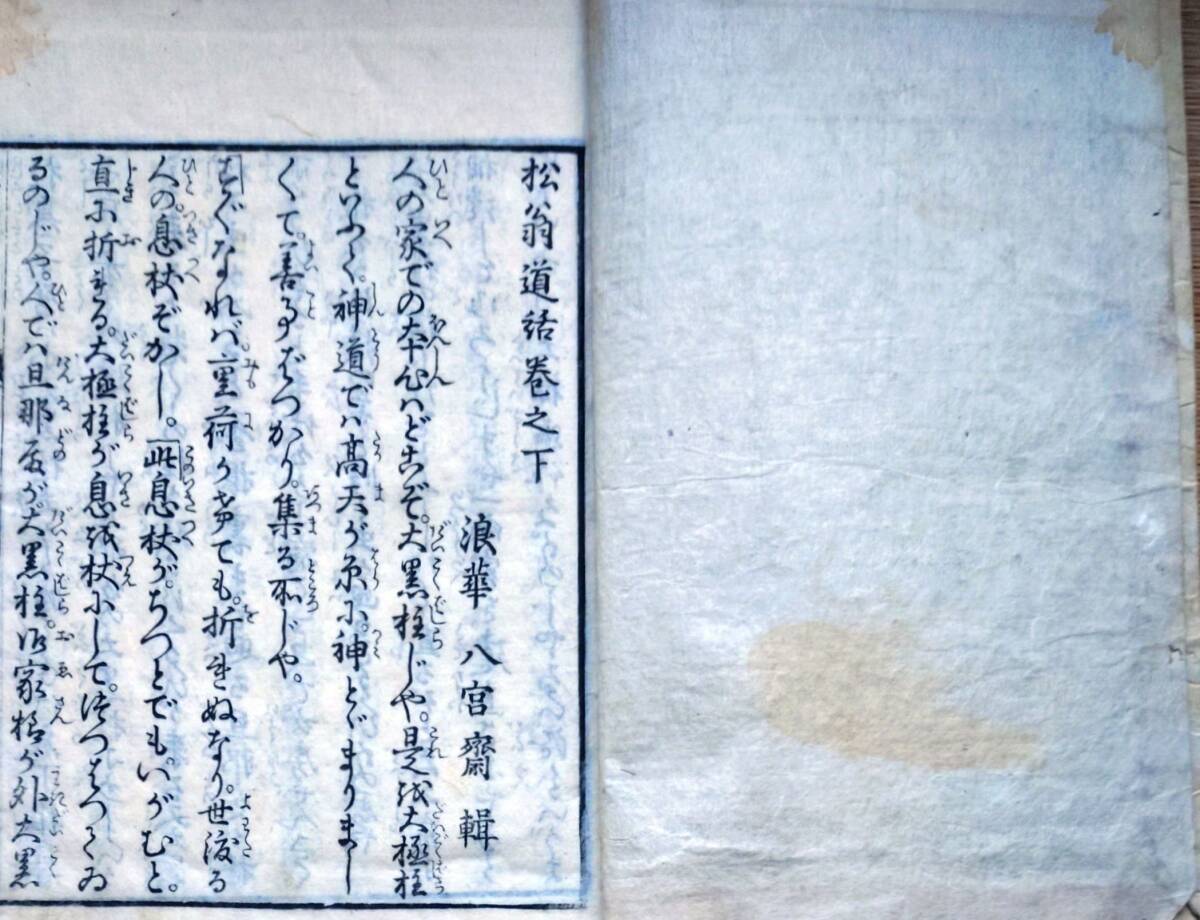 松翁道話巻之下
浪華 八宮齋 輯
人の家での本心ハどこぞ。大黒柱じや。是を大極柱
といふて。神道でハ高天が原に。神とゞまりまし
くて。善事ばつかり。集る所じや。
すぐなれバ。重荷かけても。折れぬなり。世渡る
人の。息杖ぞかし。此息杖が。ちつとでも。いがむと。
直に折れる。大極柱が息を杖にして。つつはつてゐ
るのじや。人でハ旦那殿が大黒柱。お家様が外大黒